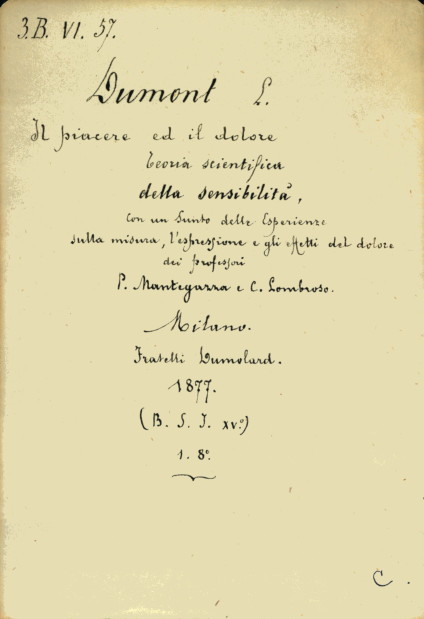 3.B. VI. 57.
Dumont L.
Il piacere ed il dolore
Teoria scientifica
della sensibilità,
con un sunto delle Esperienze
sulla misura, l'espressione e gli effetti del dolore
dei professori
P. Mantegazza e C. Lombroso.
Milano.
Fratelli Dumolard.
1877.
(B. S. I. XV.º)
1. 8º.
C.